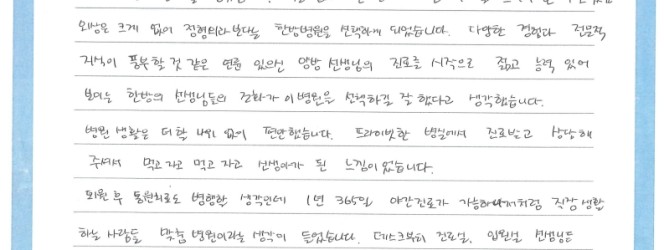 외상은 크게 없이 정형외과 보다는 한방병원을 선택하게 되었습니다. 다양한 경험과 전문적
지식이 풍부할 것 같은 연륜 있으신 양방 선생님의 진료를 시작으로 젊고 능력 있어
보이는 한방의 선생님들의 전화가 이 병원을 선택하길 잘 했다고 생각했습니다.
병원 생활은 더할 나위 없이 편안했습니다. 프라이빗한 병실에서 진료받고 상담해
주셔서 먹고 자고 먹고 자고 선생아가 된 느낌이었습니다.
퇴원 후 통원치료도 병행할 생각인데 1년 365일 야간진료가 가능하니 저처럼 직장 생활
하는 사람들 맞춤 병원이라는 생각이 들었습니다. 데스크부터 진료실, 입원실 선생님들